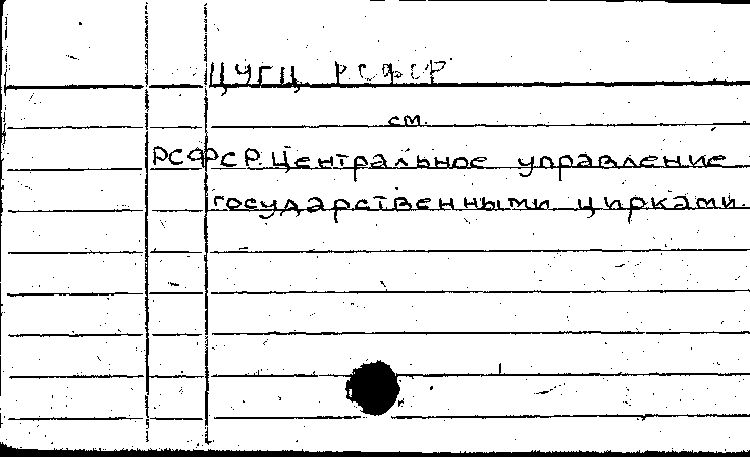 ЦУГЦ РСФСР
см.
РСФСР. Центральное управление
государственными цирками.